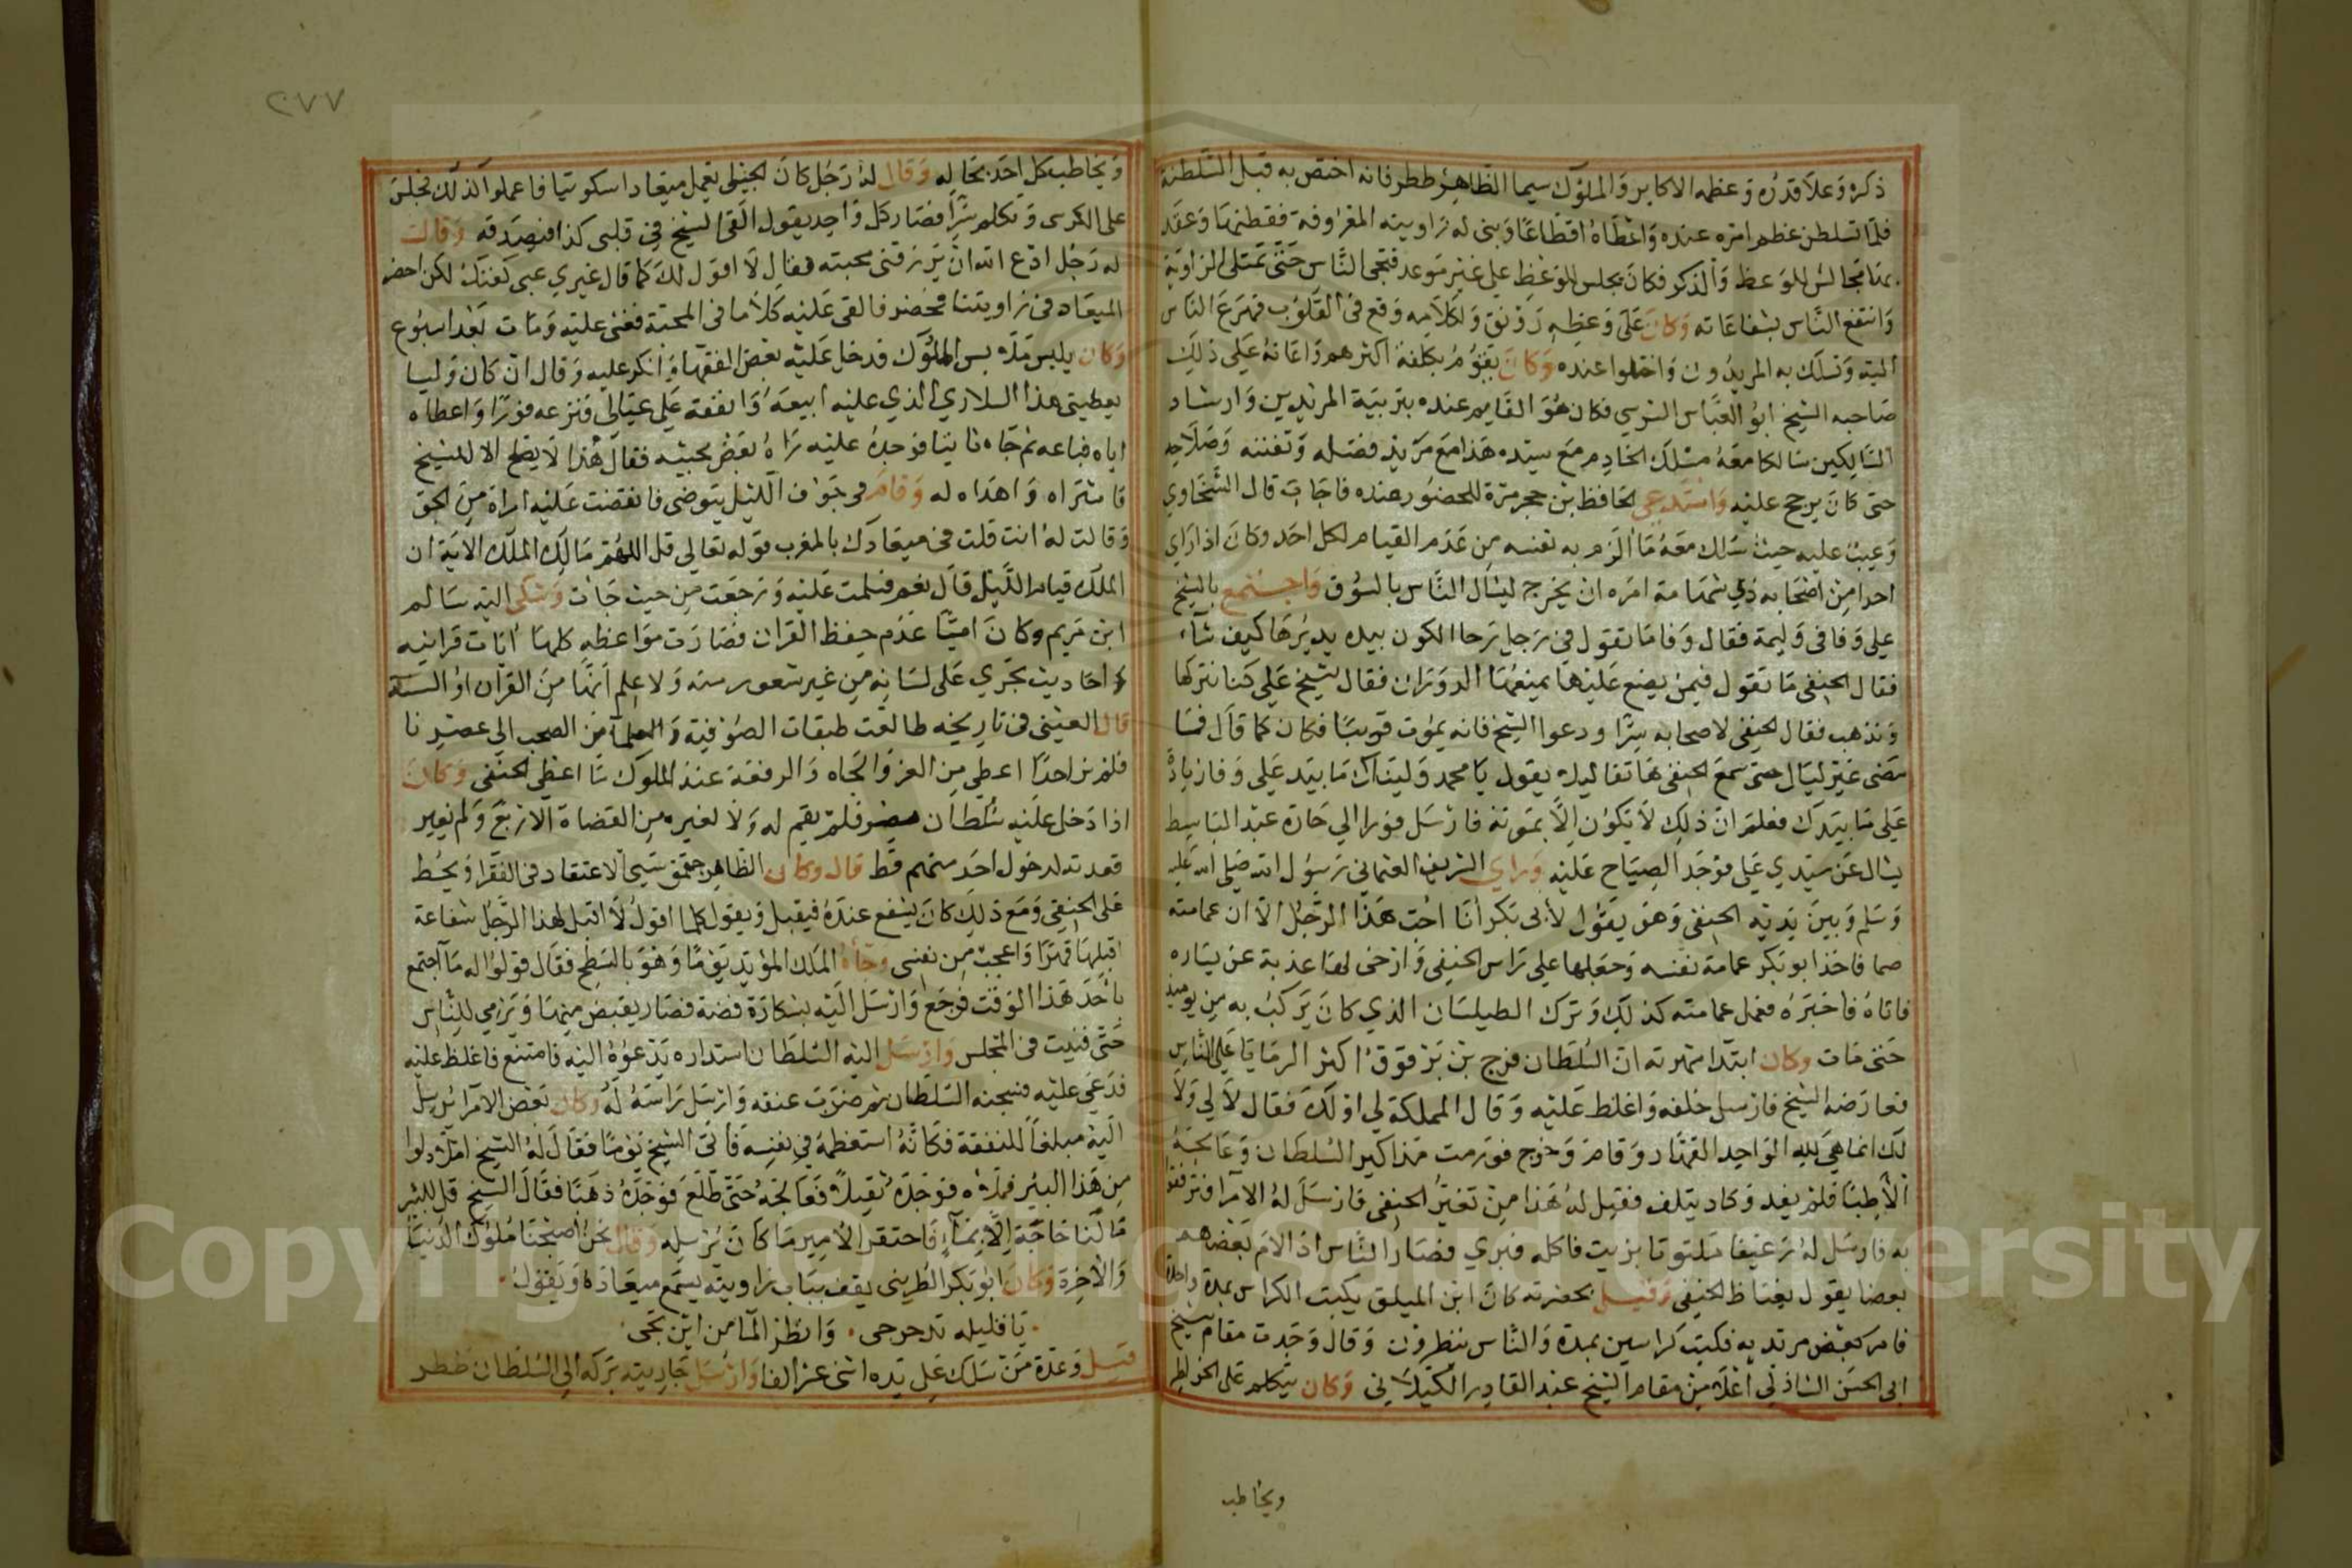 ذكره وعلا قدره وعظمه الاكابر والملوك سيما الظاهر ططر فانه اختص به قبل السلطنة
فلما تسلطن عظم امره عنده واعطاه اقطاعا وبنى له زاويته المعروفة فقطنها وعقد
بها مجالس للوعظ والذكر فكان مجلس الوعظ على غير موعد فتجى الناس حتى تمتلى الزاوية
وانتفع الناس بشفاعاته وكان على وعظه رونق ولكلامه وقع في القلوب فهرع الناس
اليه وتسلك به المريدون واختلوا عنده وكان يقوم بكلفة اكثرهم واعانه على ذلك
صاحبه الشيخ ابو العباس السرسي فكان هو القايم عنده بتربية المريدين وارشاد
السالكين سالكا معه مسلك الخادم مع سيده هذا مع مزيد فضله وتفننه وصلاحه
حتى كان يرجح عليه واستدعي الحافظ بن حجر مرة للحضور عنده فاجاب قال السخاوي
وعيب عليه حيث سلك معه ما الزم به نفسه من عدم القيام لكل احد وكان اذا راي
احدا من اصحابه ذي شهامة امره ان يخرج ليسال الناس بالسوق واجتمع بالشيخ
علي وفا في وليمة فقال وفا ما تقول في رجل رحا الكون بيده يديرها كيف شاء
فقال الحنفي ما تقول فيمن يضع عليها يمنعها الدوران فقال شيخ علي كنا نتركها
ونذهب فقال الحنفي لاصحابه سرا ودعوا الشيخ فانه يموت قريبا فكان كما قال فما
مضى غير ليال حتى سمع الحنفي هاتفا ليلا يقول يا محمد وليناك ما بيد علي وفا زيادة
علي ما بيدك فعلم ان ذلك لا يكون الا بموته فارسل فورا الي حارة عبد الباسط
يسال عن سيدي علي فوجد الصياح عليه وراي الشريف العثماني رسول الله صلى الله عليه
وسلم وبين يديه الحنفي وهو يقول لابى بكر انا احب هذا الرجل الا ان عمامته
صما فاخذ ابو بكر عمامة نفسه وجعلها علي راس الحنفي وارخى لها عذبة عن يساره
فاتاه فاخبره فعمل عمامته كذلك وترك الطيلسان الذي كان يركب به من يوميذ
حتى مات وكان ابتدا شهرته ان السلطان فرج بن برقوق اكثر الرمايا على الناس
فعارضه الشيخ فارسل خلفه واغلظ عليه وقال المملكة لي اولك فقال لا لي ولا
لك انما هي لله الواحد القهار وقام وخرج فورمت مذاكير السلطان وعالجه
الاطبا فلم يفد وكاد يتلف فقيل له هذا من تغير الحنفي فارسل له الامرا فترفقوا
به فارسل له رغيفا ملتوتا بزيت فاكله فبري فصار الناس اذا لام بعضهم
بعضا يقول يغتاظ الحنفي وقيل بحضرته كان ابن الميلق يكتب الكراس بمدة واحدة
فامر بعض مريديه فكتب كراسين بمدة والناس ينظرون وقال وجدت مقام شيخ
ابى الحسن الشاذلي اعلا من مقام الشيخ عبد القادر الكيلاني وكان يتكلم على الخواطر
ويخاطب
٢٧٧
ويخاطب كل احد بحاله وقال له رجل كان الجيلى يعمل ميعادا سكوتيا فاعملوا لنا ذلك فجلس
على الكرسى وتكلم سرا فصار كل واحد يقول القى الشيخ في قلبى كذا فيصدقه وقالت
له رجل ادع الله ان يرزقنى محبته فقال لا اقول لك كما قال غيري عبى كفنك لكن احضر
الميعاد في زاويتنا فحضر فالقى عليه كلاما في المحبة فغشى عليه ومات بعد اسبوع
وكان يلبس ملابس الملوك فدخل عليه بعض الفقها وانكر عليه وقال ان كان وليا
يعطينى هذا السلاري الذي عليه ابيعه وانفقه على عيالي فنزعه فورا واعطاه
اياه فباعه ثم جاه ثانيا فوجده عليه راه بعض محبيه فقال هذا لا يصلح الا للشيخ
فاشتراه واهداه له وقام في جوف الليل يتوضى فانقضت عليه امراة من الجو
وقالت له انت قلت في ميعادك بالمغرب قوله تعالى قل اللهم مالك الملك الاية ان
الملك قيام الليل قال نعم فسلمت عليه ورجعت من حيث جات وشكى اليه سالم
ابن مريم وكان اميا عدم حفظ القران فصارت مواعظه كلها ايات قرانية
واحاديث تجري على لسانه من غير شعور منه ولا علم انها من القرآن او السنة
قال العيني في تاريخه طالعت طبقات الصوفية والعلما من الصحب الى عصرنا
فلم نر احدا اعطي من العز والجاه والرفعة عند الملوك ما اعطي الحنفي وكان
اذا دخل عليه سلطان مصر فلم يقم له ولا لغيره من القضاة الاربع ولم يغير
قعدته لدخول احد منهم قط قال وكان الظاهر جقمق سيى الاعتقاد في الفقرا ويحط
على الحنفي ومع ذلك كان يشفع عنده فيقبل ويقول كلما اقول لا اقبل لهذا الرجل شفاعة
اقبلها قهرا واعجب من نفسى وجاه الملك المؤيد يوما وهو بالسطح فقال قولوا له ما اجتمع
باحد هذا الوقت فرجع وارسل اليه بشكارة فضة فصار يقبض منها ويرمي للناس
حتى فنيت في المجلس وارسل اليه السلطان استداره يدعوه اليه فامتنع فاغلظ عليه
فدعى عليه فسجنه السلطان ثم ضربت عنقه وارسل راسه له وكان بعض الامرا يرسل
اليه مبلغا للنفقة فكانه استعظمه في نفسه فاتى الشيخ يوما فقال له الشيخ املا دلوا
من هذا البير فملاه فوجده ثقيلا فعالجه حتى طلع فوجده ذهبا فقال الشيخ قل للبير
ما لنا حاجة الا بماء فاحتقر الامير ما كان يرسله وقال نحن اصبحنا ملوك الدنيا
والاخرة وكان ابو بكر الطرينى يقف بباب زاويته يسمع ميعاده ويقول
يا قليله تدحرجى وانظر الما من اين تجى
قيل وعدة من سلك على يده اثنى عشر الفا وارسل جاريته بركه الى السلطان ططر
Copyright © King Saud University